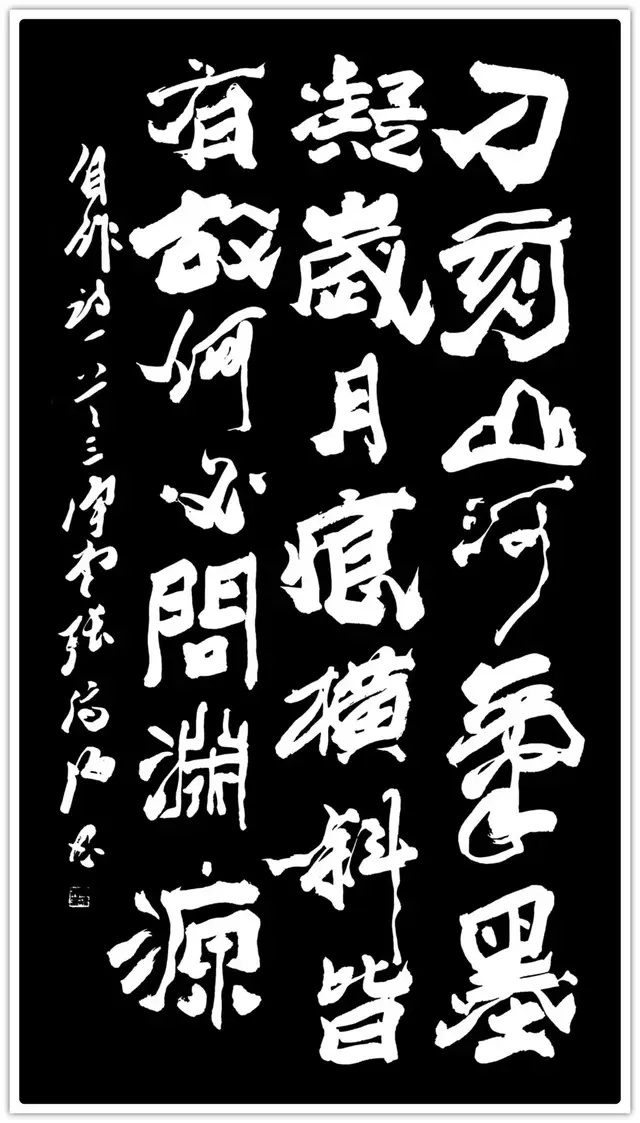 刀刻山河氣墨
凝歲月痕橫斜皆
有故何必問淵源
自作詩一三張